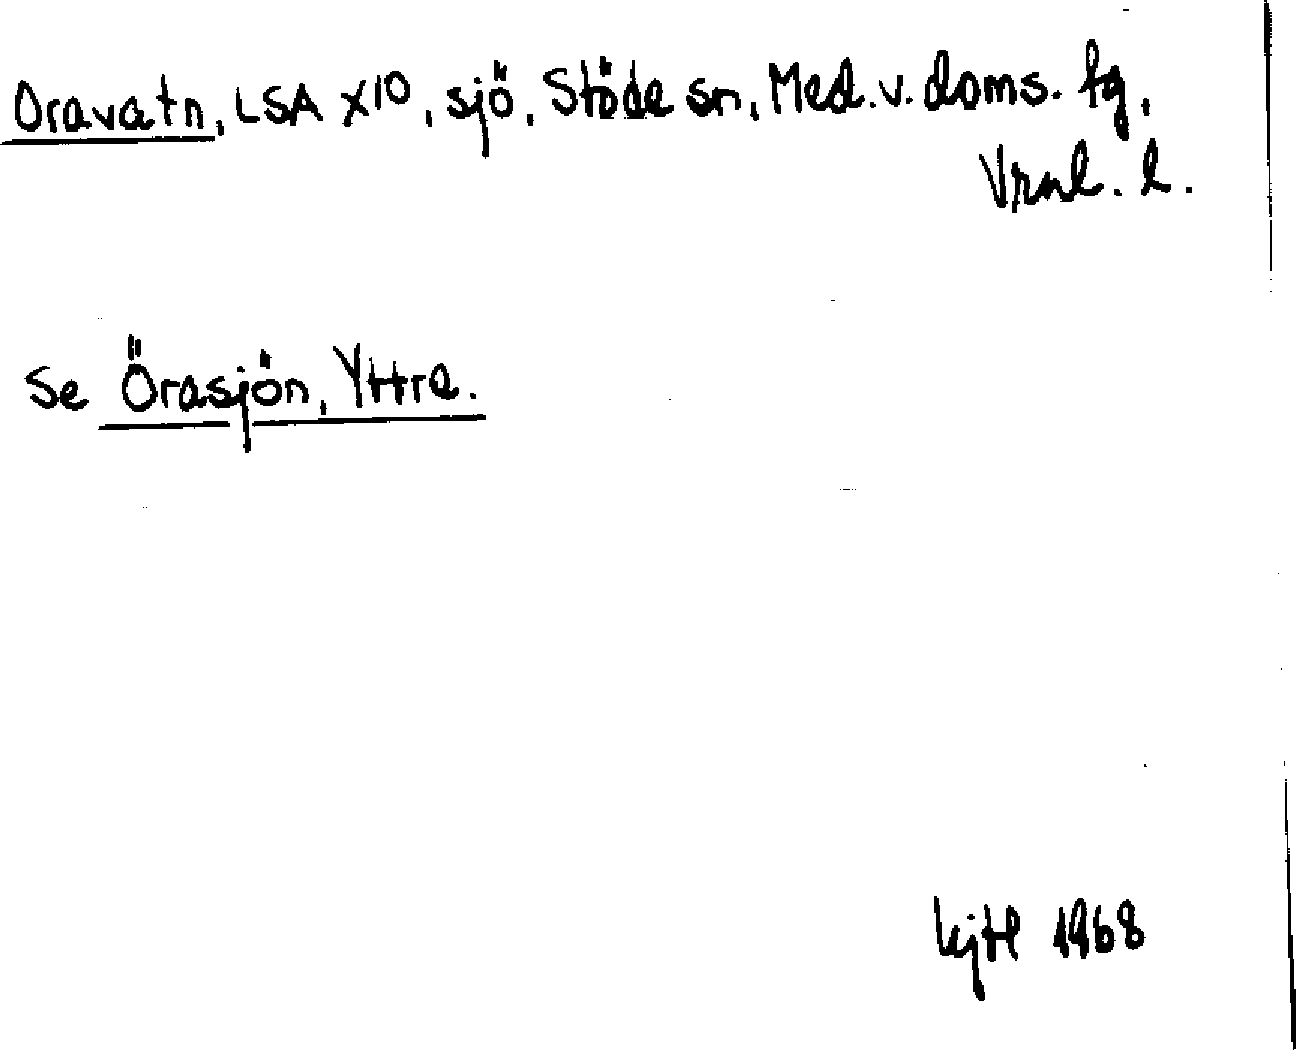 Oravatn, LSA X10, sjö, Stöde sn, Med. v. doms. tg,
Vrnl. l.
Se Örasjön, Yttre.
1968